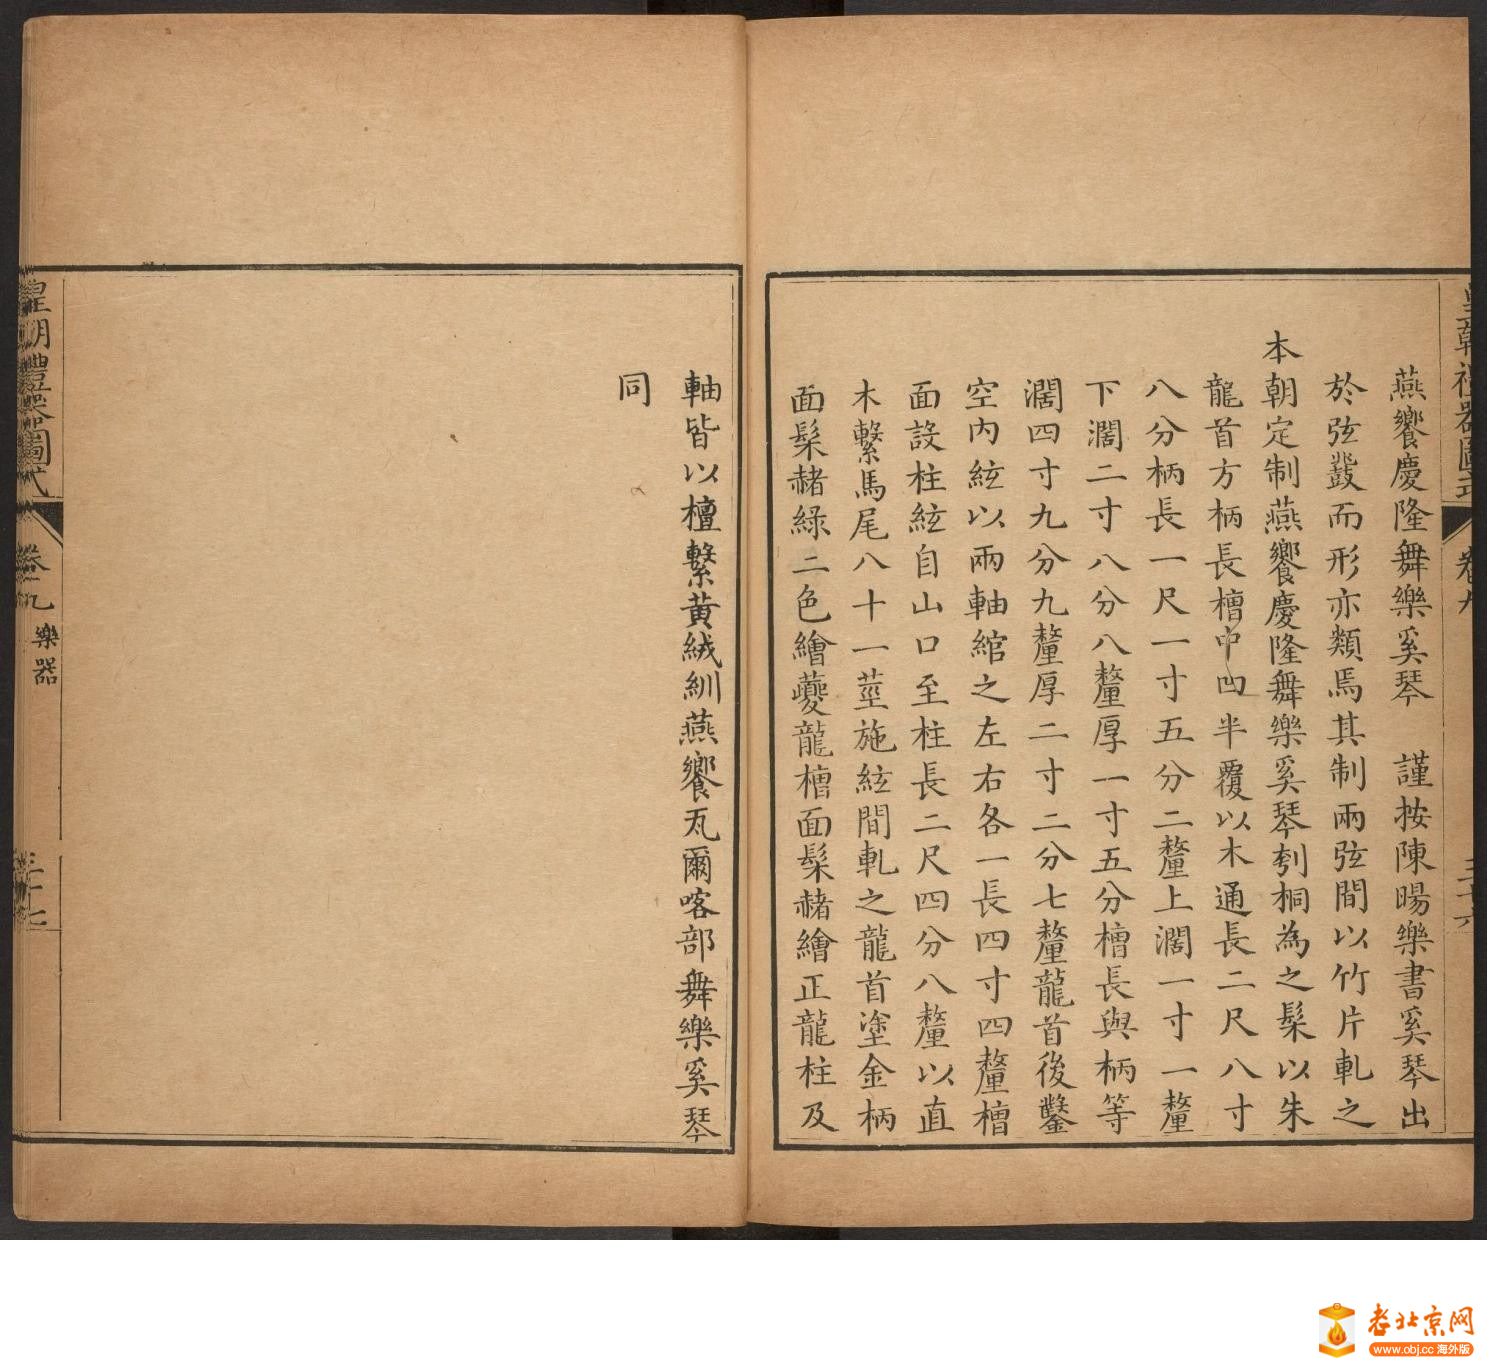 皇朝禮器圖式
卷九
三十六
燕饗慶隆舞樂奚琴 謹按陳暘樂書奚琴出
於弦鼗而形亦類焉其制兩弦間以竹片軋之
本朝定制燕饗慶隆舞樂奚琴刳桐為之髹以朱
龍首方柄長檜中凹半覆以木通長二尺八寸
八分柄長一尺一寸五分二釐上濶一寸一釐
下濶二寸八分八釐厚一寸五分檜長與柄等
濶四寸九分九釐厚二寸二分七釐龍首後鑿
空內絃以兩軸綰之左右各一長四寸四釐檜
面設柱絃自山口至柱長二尺四分八釐以直
木繫馬尾八十一莖施絃間軋之龍首塗金柄
面髹赭綠二色繪夔龍檜面髹赭繪正龍柱及
軸皆以檀繫黃絨紃燕饗瓦爾喀部舞樂奚琴
同
皇朝禮器圖式
卷九 樂器
三十七
老北京网
www.obj.cc 海外版